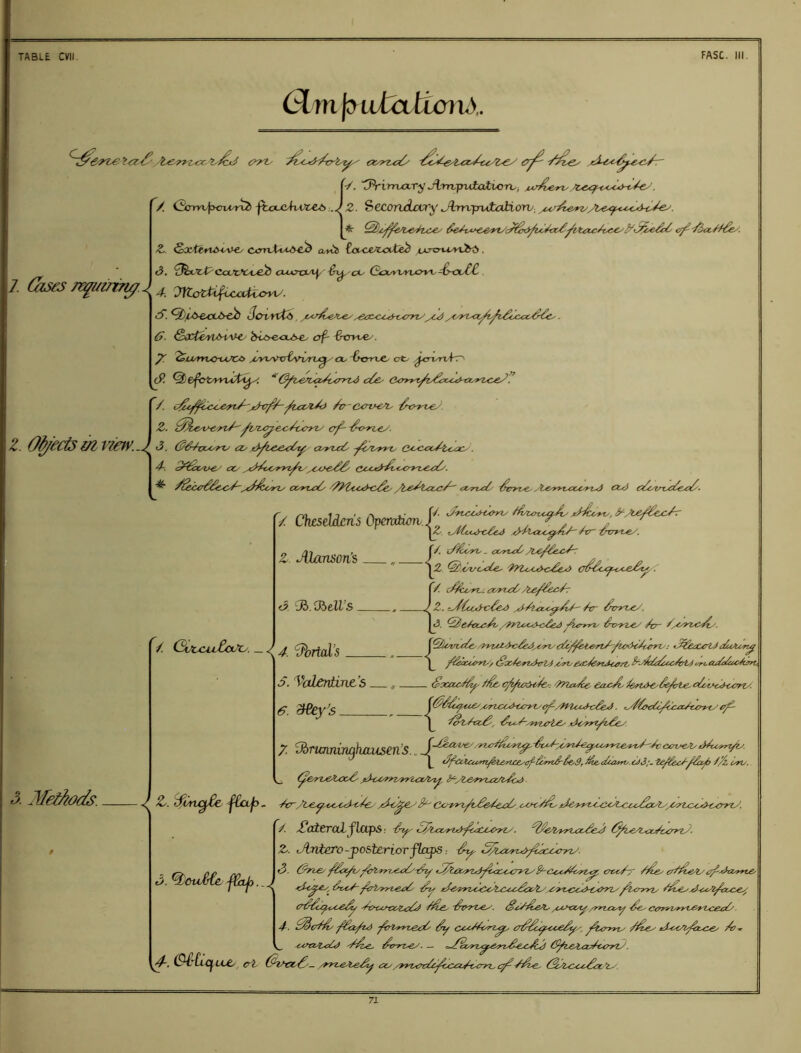 TABLE CVII.
FASC. III.
Amputations.
General remarks on history and literature of the subject
1. Cases requiring.
1. Primary Amputation, when requisite.
1. Compound fractures
2. Secondary Amputation, when requisite.
* Difference between Hospital practice & Field of Battle.
2. Extensive contused and lacerated wounds.
3. Part carried away by a Cannon-ball.
4. Mortification.
5. Diseased Joints, where excision is inapplicable.
6. Extensive disease of bone.
7. Tumours involving a bone or joint
8. Deformity: "Opérations de Complaisance."
2. Objects in view.
1. Sufficient soft parts to cover bone.
2. Prevent projection of bone.
3. Obtain a speedy and firm Cicatrix.
4. Have a stump well cushioned.
* Recollect Skin and Muscle retract and bone remains as divided.
3. Methods.
1. Circular.
1. Cheselden's Operation.
1. Incision through skin, & reflect
2. Muscles straight to bone.
2. Alanson's
1. Skin and reflect
2. Divide Muscles obliquely.
3. B. Bell's
1. Skin and reflect
2. Muscles straight to bone.
3. Detach muscles from bone to
4. Portal's
Divide muscles, in different positions: Flexors during
flexion, Extensors in extension & Adductors in adduction
5. Valentine's
Exactly the opposite: Make each tense before division.
6. Hey's
Oblique incision of Muscles. Modification of
Portal, but more simple.
7. Brünninghausen's
Leave nothing but integument to cover stump.
General summary & remarks.
2. Single flap.
for requisite size & completed with semicircular incision.
3. Double flap.
1. Lateral flaps: by Transfixion. Vermale's Operation.
2. Antero-posterior flaps: by Transfixion.
3. One flap formed by Transfixion & cutting out the other of same
size, but formed by semicircular incision from the surface,
obliquely towards the bone. Either way may be commenced.
4. Both flaps formed by cutting obliquely, from the surface to-
wards the bone. — Langenbeck's Operation.
4. Oblique, or Oval — merely a modification of the Circular.
71